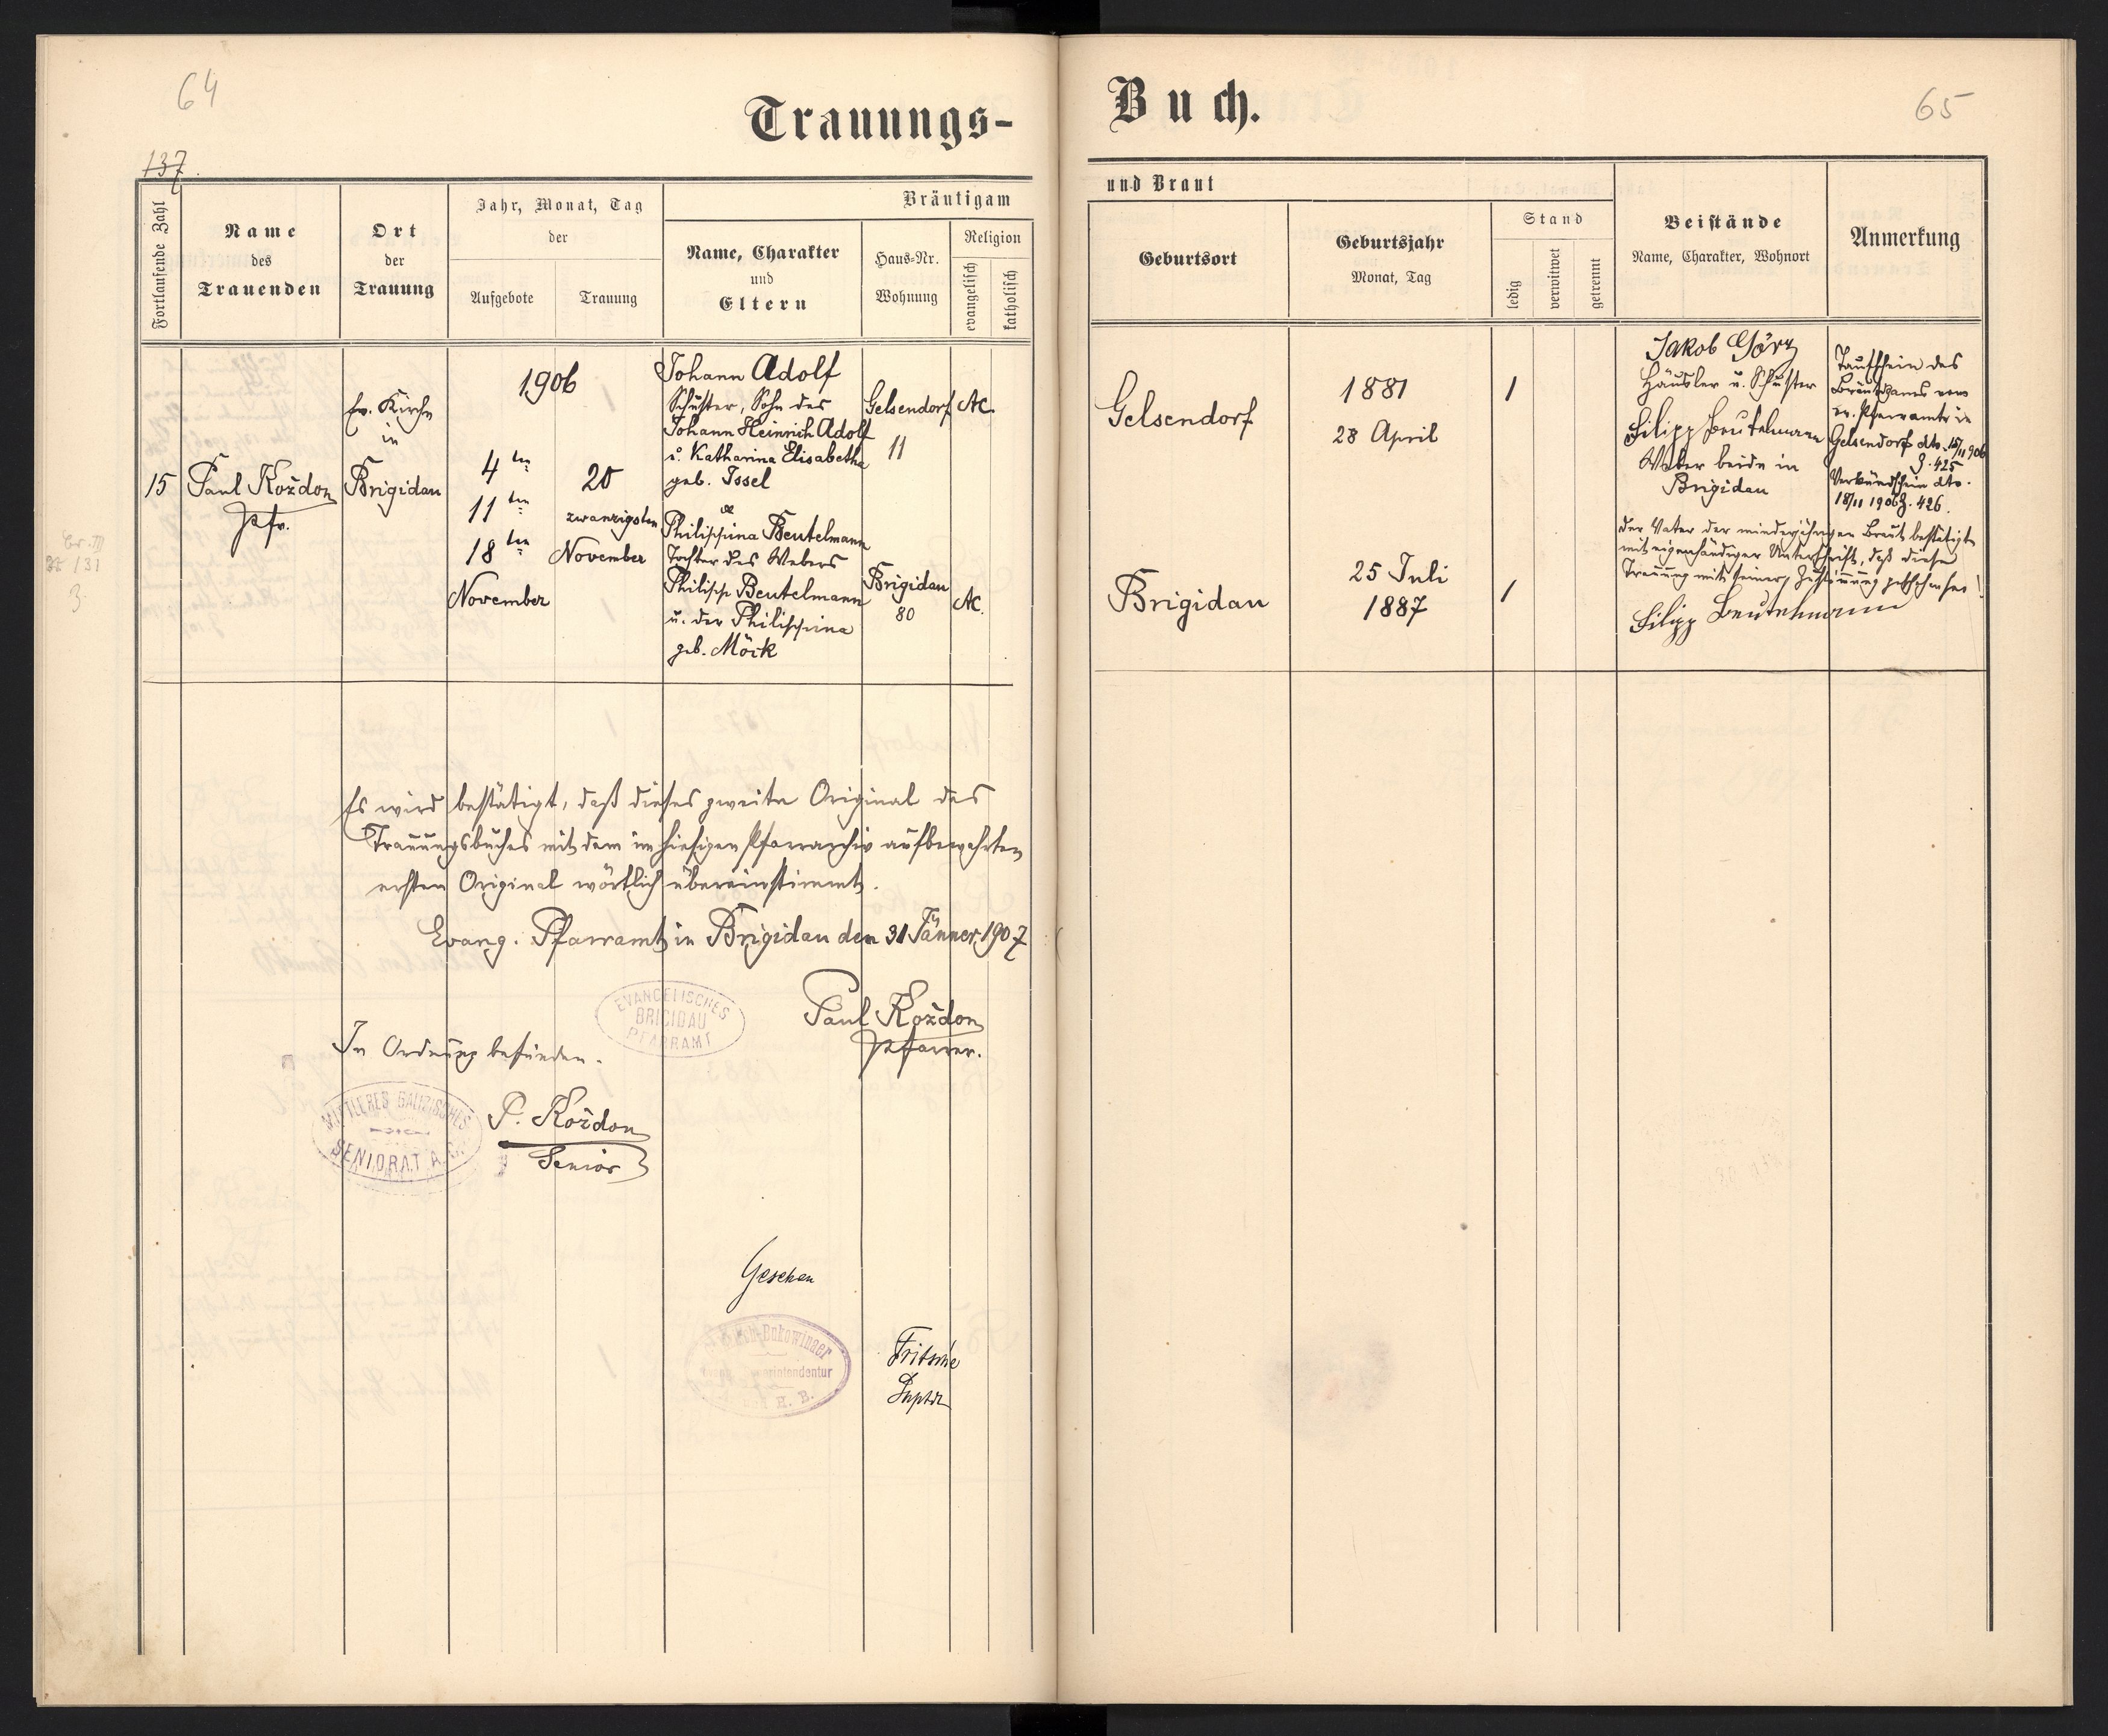 64
Trauungs-
137.
Fortlaufende Zahl
Name
des
Trauenden
Ort
der
Trauung
Jahr, Monat, Tag
der
Aufgebote
Trauung
Bräutigam
Name, Charakter
und
Eltern
Haus-Nr.
Wohnung
Religion
evangelisch
katholisch
15
Paul Kożdon
Pfr.
Ev. Kirche
in
Brigidau
1906
4ten
11ten
18ten
November
20
zwanzigsten
November
Johann Adolf
Schuster, Sohn des
Johann Heinrich Adolf
u. Katharina Elisabetha
geb. Issel
&
Philippina Beutelmann
Tochter des Webers
Philipp Beutelmann
u. der Philippina
geb. Möck
Gelsendorf
11
Brigidau
80
AC.
AC.
131
3
Es wird bestätigt, daß dieses zweite Original des
Trauungsbuches mit dem im hiesigen Pfarrarchiv aufbewahrten
ersten Original wörtlich übereinstimmt.
Evang. Pfarramt in Brigidau den 31 Jänner 1907
EVANGELISCHES
BRIGIDAU
PFARRAMT
Paul Kożdon
Pfarrer.
In Ordnung befunden.
MITTLERES GALIZISCHES
SENIORAT A.
P. Kożdon
Senior
Gesehen
Bukowinaer
Superintendentur
H. B.
Fritsche
Suptdt
Buch.
65
und Braut
Geburtsort
Geburtsjahr
Monat, Tag
Stand
ledig
verwitwet
getrennt
Beistände
Name, Charakter, Wohnort
Anmerkung
Gelsendorf
1881
28 April
1
Jakob Görz
Häusler u. Schuster
Filipp Beutelmann
Weber beide in
Brigidau
Taufschein des
Bräutigams vom
ev. Pfarramte in
Gelsendorf dto. 15/11 906
Z. 425
Verkündschein dto.
18/11 1906 Z. 426.
Brigidau
25 Juli
1887
1
Der Vater der minderjährigen Braut bestätigt
mit eigenhändiger Unterschrift, daß diese
Trauung mit seiner Zustimmung geschehen sei!
Filipp Beutelmann